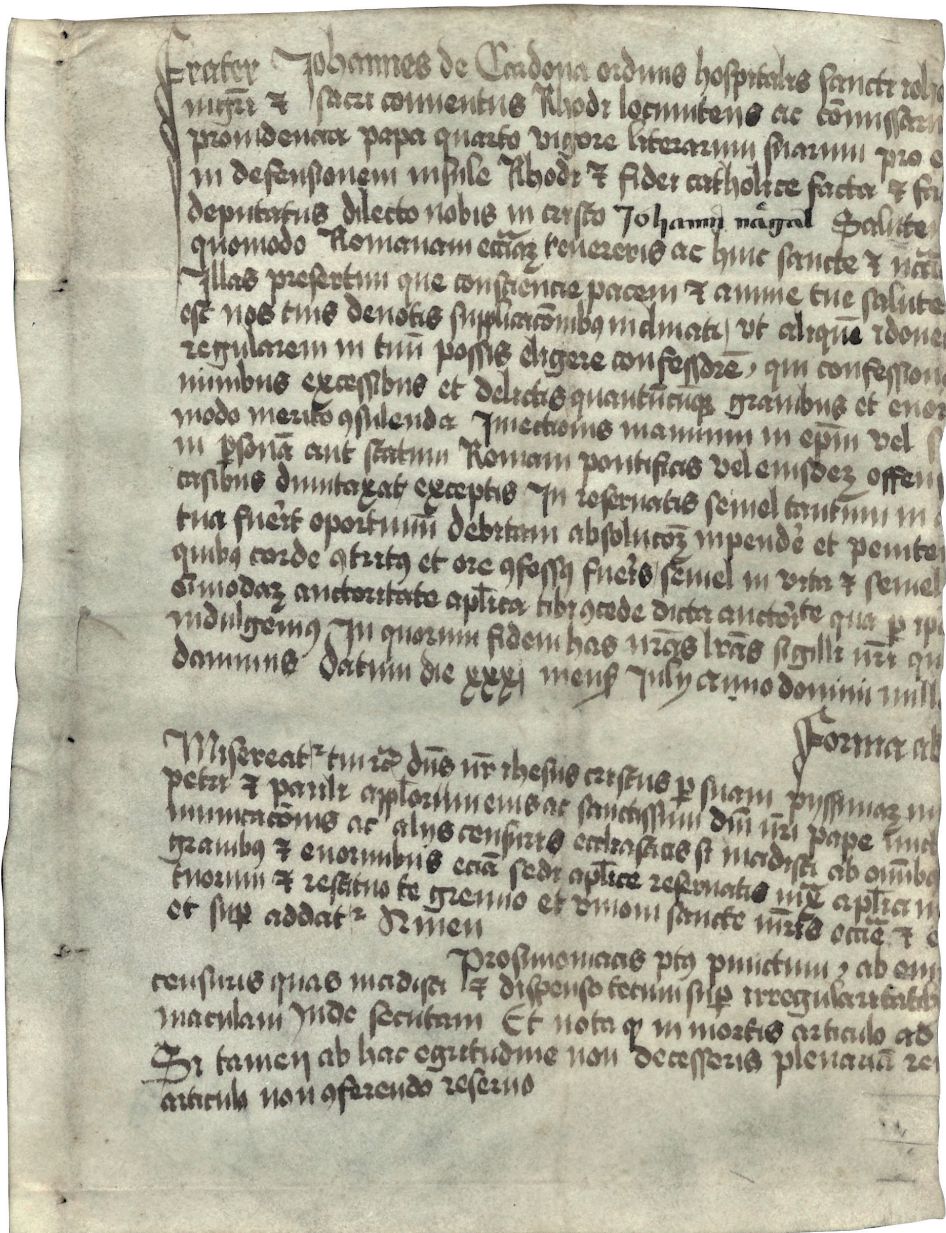 Frater Johannes de Cardona ordinis hospitalis sancti ioh
mgri & sacri conventus Rhodi locumtens ac comissari
providencia papa quarto vigore literarum suarum pro e
in defensionem insule Rhodi & fidei catholice facta & fa
deputatus dilecto nobis in cristo Johann nagal Salute
quomodo Romanam eccliaz revereris ac huic sancte & ncra
Illas presertim que consciencie pacem & anime tue salute
est nos tuis devotis supplicacombus inclinati, ut aliquē idone
regularem in tuū possis eligere confessorē, qui confession
minibus excessibus et delictis quantūcuqz gravibus et enor
modo merito 9sulenda Iniectionis manuum in epm vel s
in psonā aut statum Romani pontificis vel eiusdez offen
casibus dumtaxat exceptis In reservatis semel tantum in
tua fuerit oportunū debitam absolucoz inpendere et penite
quibus corde 9trit9 et ore 9fess9 fueris semel in vita & semel
omodaz auctoritate aplica tibi 9cede dicta auctorte qua p ip
indulgem9 In quorum fidem has nras lras sigilli nri qu
damus Datum die xxxj mens July anno domini mill
Forma ab
Misereatr tui rc dns nr ihesus cristus p suam pyssimaz m
petri & pauli applorum eius ac sanctissimi dni nri pape
municacōnis ac alys censuris ecclasticis si incidisti ab omib9
gravib9 & enormibus eciā sedi aplice reservatis aplica
tuorum & restituo te gremio et unioni sancte mris eccie & e
et sup addatr Amen
Prosimoniacis pty punctum, ab em
censuris quas incidisti & dispenso tecum sup irregularitatib
maculam Inde secutam Et nota q in mortis articulo ad
Si tamen ab hac egritudine non decesseris plenariā re
articulo non 9ferendo reservo